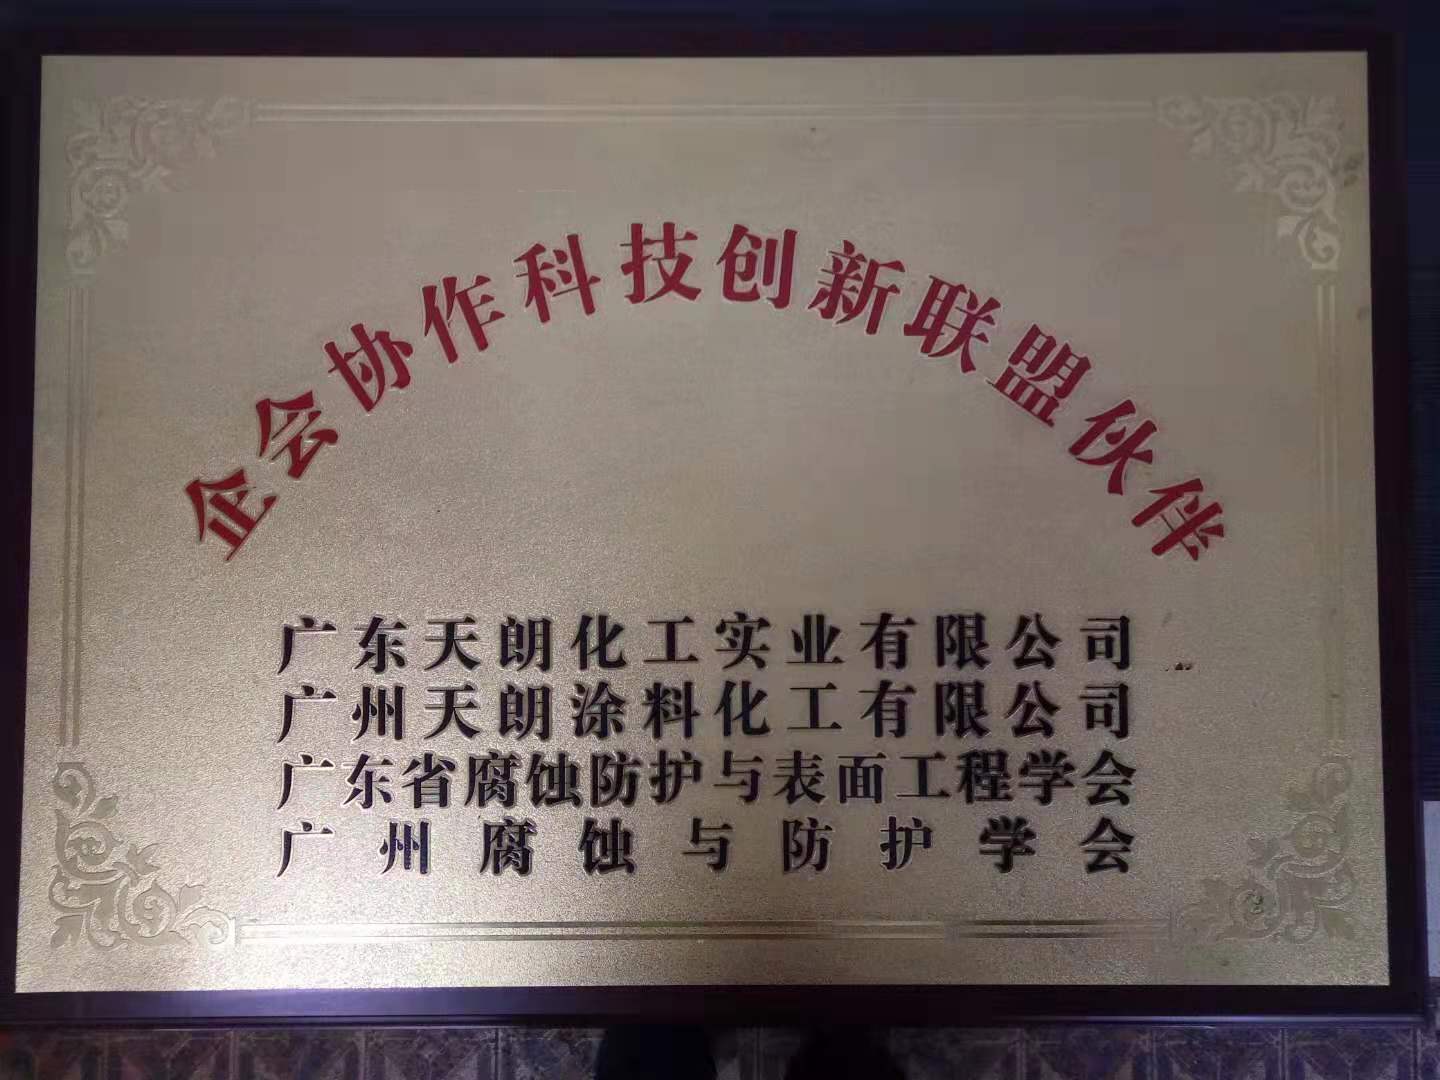 企会协作科技创新联盟伙伴
广东天朗化工实业有限公司
广州天朗涂料化工有限公司
广东省腐蚀防护与表面工程学会
广州腐蚀与防护学会